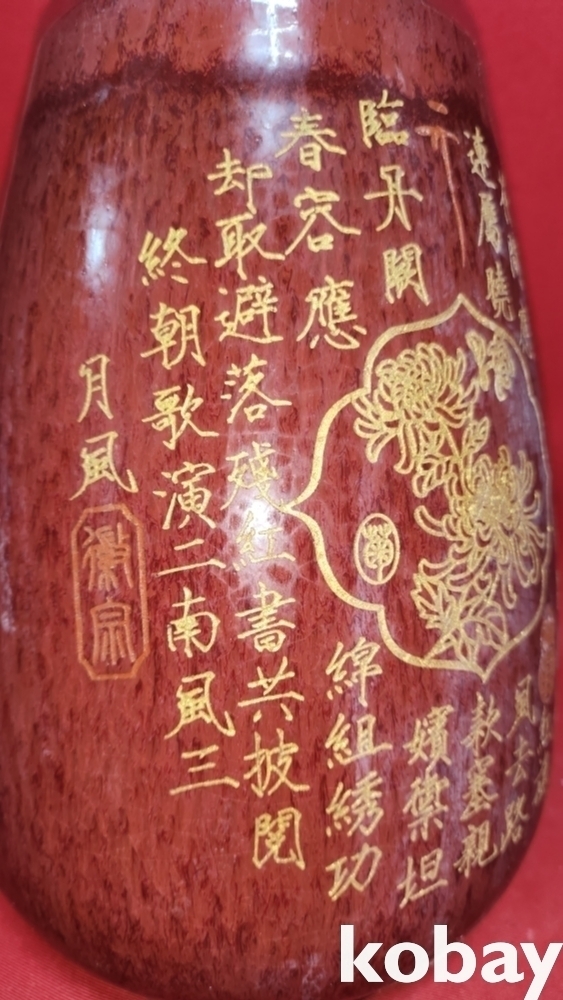 曉 款塞親
臨丹闕 嬪禦坦
春容應 綿組綉功
却取避落殘紅書共披閱
終朝歌演二南風三
月風
徽宗
kobay